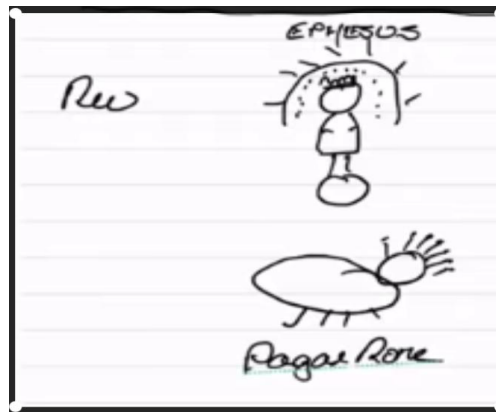 EPHESUS
Rev
Pagan Rome